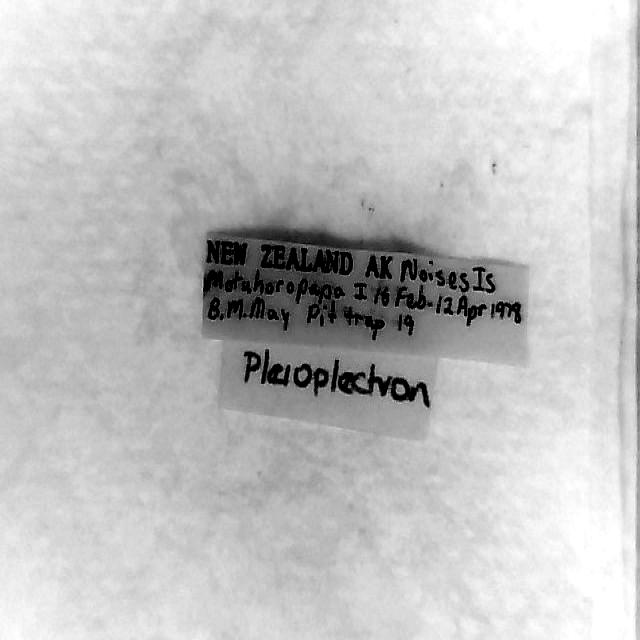 NEW ZEALAND AK Noises Is
Motuhoropapa I 16 Feb-12 Apr 1978
B.M.May Pit trap 19
Pleioplectron